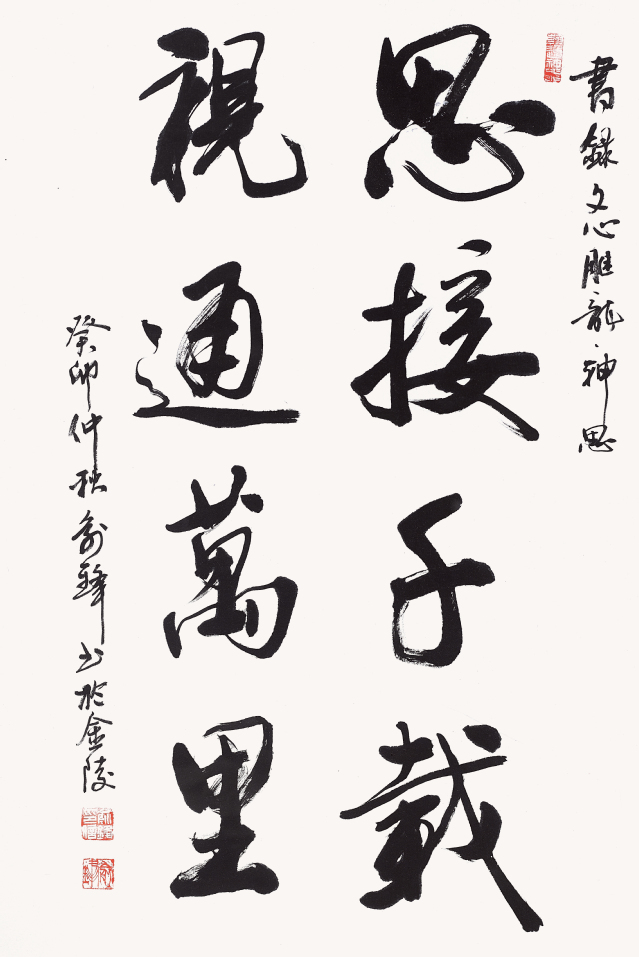 書録文心雕龍·神思
思接千載
視通萬里
癸卯仲秋俞峰书於金陵